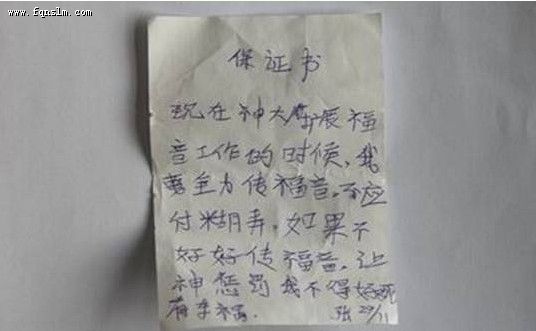 www.fqnslm.com
保证书
现在神大扩展福
音工作的时候,我
要全力传福音。不应
付糊弄,如果不
好好传福音,让
神惩罚我不得好死
有车祸。 张 29/11